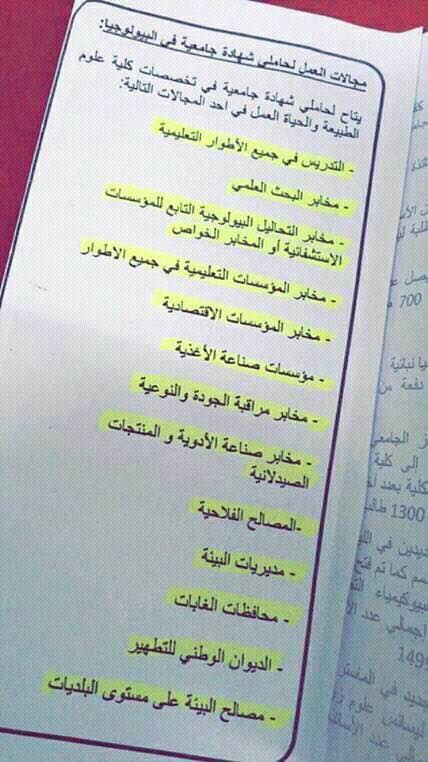 مجالات العمل لحاملي شهادة جامعية في البيولوجيا:
يتاح لحاملي شهادة جامعية في تخصصات كلية علوم
الطبيعة والحياة العمل في احد المجالات التالية:
- التدريس في جميع الأطوار التعليمية
- مخابر البحث العلمي
- مخابر التحاليل البيولوجية التابع للمؤسسات
الاستشفائية أو المخابر الخواص
- مخابر المؤسسات التعليمية في جميع الاطوار
- مخابر المؤسسات الاقتصادية
- مؤسسات صناعة الأغذية
- مخابر مراقبة الجودة والنوعية
- مخابر صناعة الأدوية و المنتجات
الصيدلانية
-المصالح الفلاحية
- مديريات البيئة
- محافظات الغابات
- الديوان الوطني للتطهير
- مصالح البيئة على مستوى البلديات
700
يا نباتية
دفعة من
ز الجامعي
إلى كلية
كلية بعدد
1300 طالب
ديدين في
سم كما تم فتح
بيوكيمياء
إجمالي عدد
1499
جديد في الماستر
ليسانس علوم